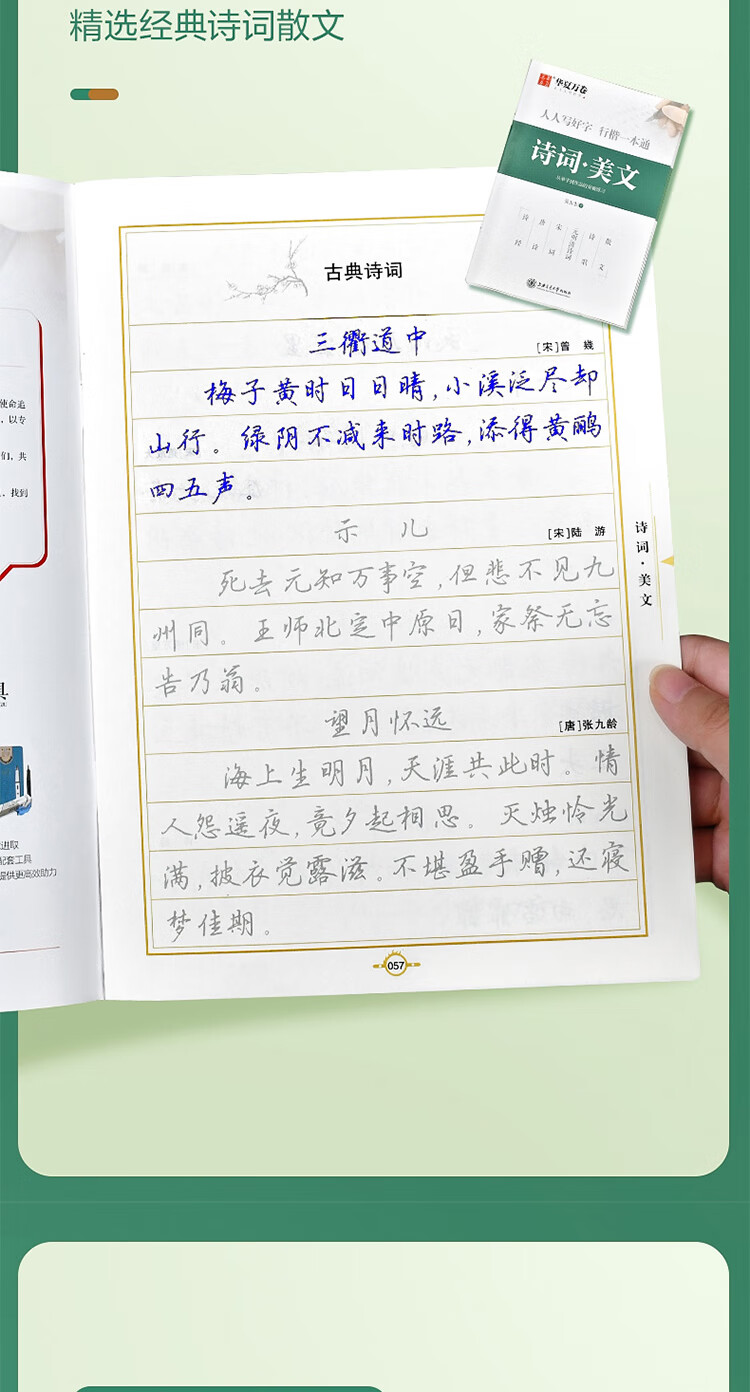 精选经典诗词散文
华夏万卷
人人写好字 行楷一本通
诗词·美文
古典诗词
三衢道中
[宋]曾 幾
梅子黄时日日晴，小溪泛尽却
山行。绿阴不减来时路，添得黄鹂
四五声。
示 儿
[宋]陆 游
死去元知万事空，但悲不见九
州同。王师北定中原日，家祭无忘
告乃翁。
望月怀远
[唐]张九龄
海上生明月，天涯共此时。情
人怨遥夜，竟夕起相思。灭烛怜光
满，披衣觉露滋。不堪盈手赠，还寝
梦佳期。
诗词·美文
057
使命追
，以专
们，共
，找到
具
进取
配套工具
提供更高效助力